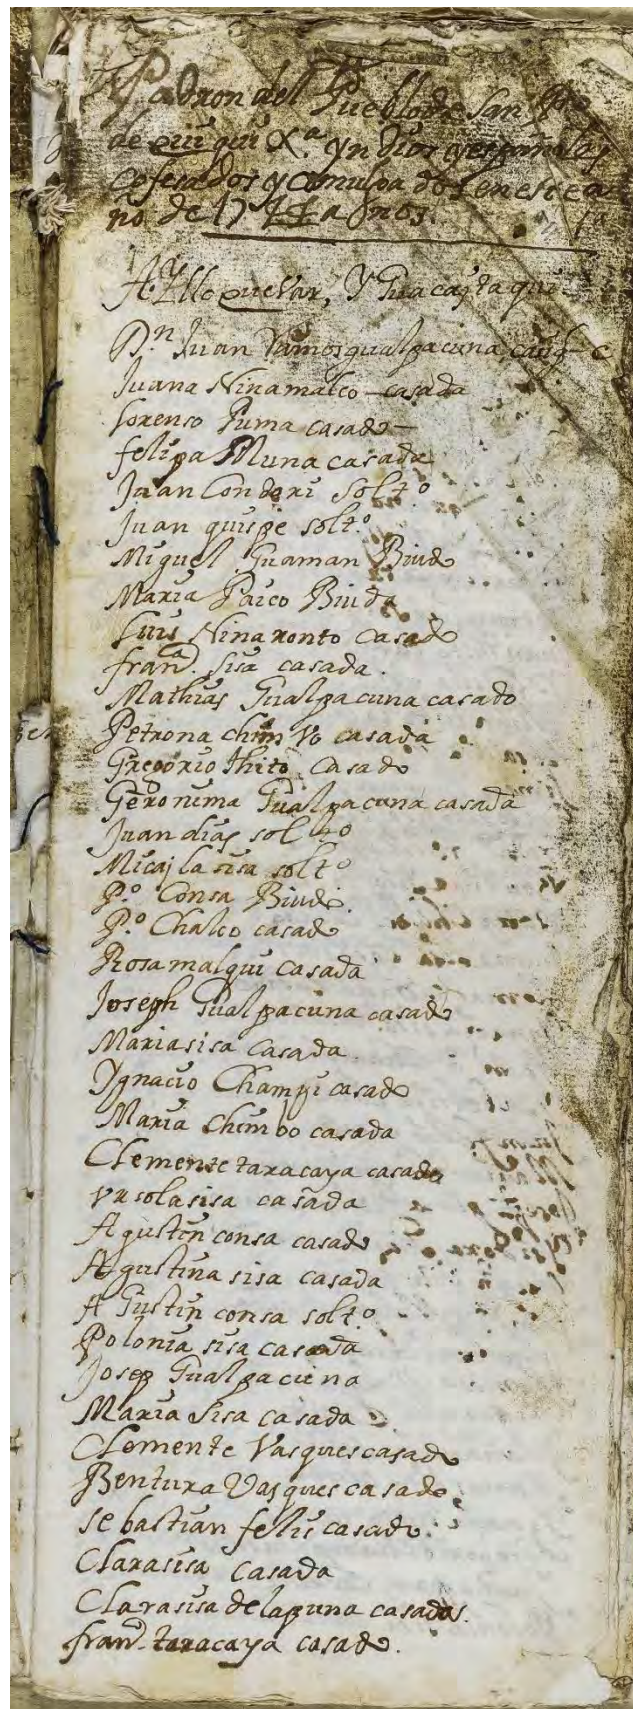 Padron del Pueblo de San P.o
de quiquix.a yndios y españoles
cofesados y comulgados en este a
no de 17 años.
Ayllo quevar, Y Guacayta qui
D.n Juan Ramos gualpacuna
Juana Ninamalco - casada
Lorenso Puma casado -
felipa Muna casada
Juan Condori Solt.o
Juan quispe solt.o
Miguel Guaman Biudo
Maria Paico Biuda
Luis Ninaronto casado
fran.ca sisa casada.
Mathias Gualpacuna casado
Petrona chimvo casada
Gregorio thito casado
Geronima Gualpacuna casada
Juan dias solto
Micajla sisa solt.o
P.o Consa Biudo.
P.o Chalco casado
Rosa malqui casada
Joseph Gualpacuna casado
Maria sisa Casada.
Ygnacio Champi casado
Maria chimbo casada
Clemente taracaya casado
vrsola sisa casada
Agustin consa casado
Agustina sisa casada
A Gustin consa solt.o
Polonia sisa casada
Josep Gualpacuna
Maria Sisa casada
Clemente Vasques casado
Bentura Vasques casado
sebastian felis casado.
Clara sisa casada
Clara sisa de laguna casados.
fran.co taracaya casado.